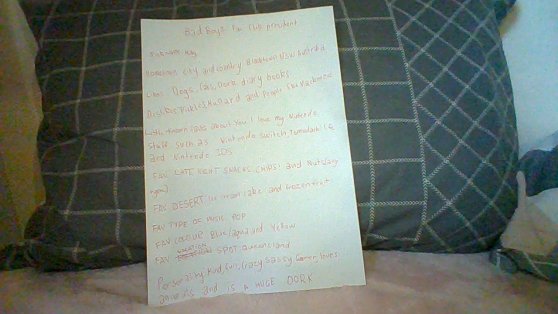 Bad Boys Fan Club president
Nickname
Hometown City and country Blacktown NSW
Likes Dogs, Cats, Dork diary books
Dislikes Pickles, Mustard and People
Little known facts about you I love my Nintendo
stuff such as Nintendo switch, Tomodachi Life
and Nintendo 3DS
FAV LATE NIGHT SNACKS CHIPS! and Nuts
FAV DESERT Ice cream cake and frozen fruit
FAV TYPE OF MUSIC POP
FAV COLOUR Blue/aqua and Yellow
FAV VACATION SPOT Queensland
Personality Kind, fun, Crazy Sassy Gamer, loves
animals and is A HUGE DORK